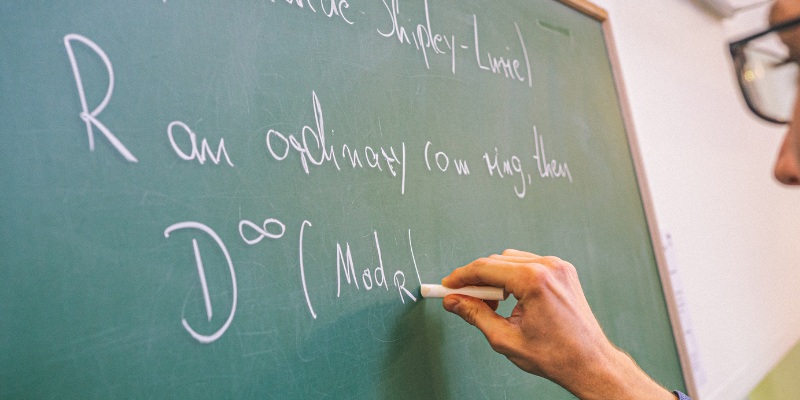 - Shipley - Lurie)
R an ordinary com ring, then
D^∞(Mod_R)